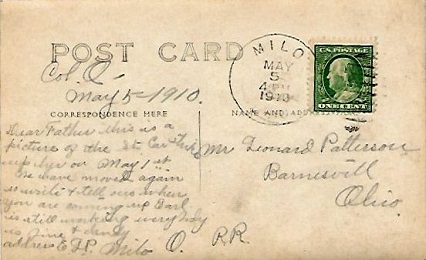 POST CARD
Col. O-
May 5-1910.
MILO
MAY
5
1910
U.S. POSTAGE
ONE CENT
CORRESPONDENCE HERE
NAME AND ADDRESS
Dear Father this is a
picture of the St Car
up her on May 1st
We have moved again
write & tell us when
you are coming up Earl
is still working every day
is fine &
address E J P. Milo O. R R.
Mr Leonard Patterson
Barnesvill
Ohio.